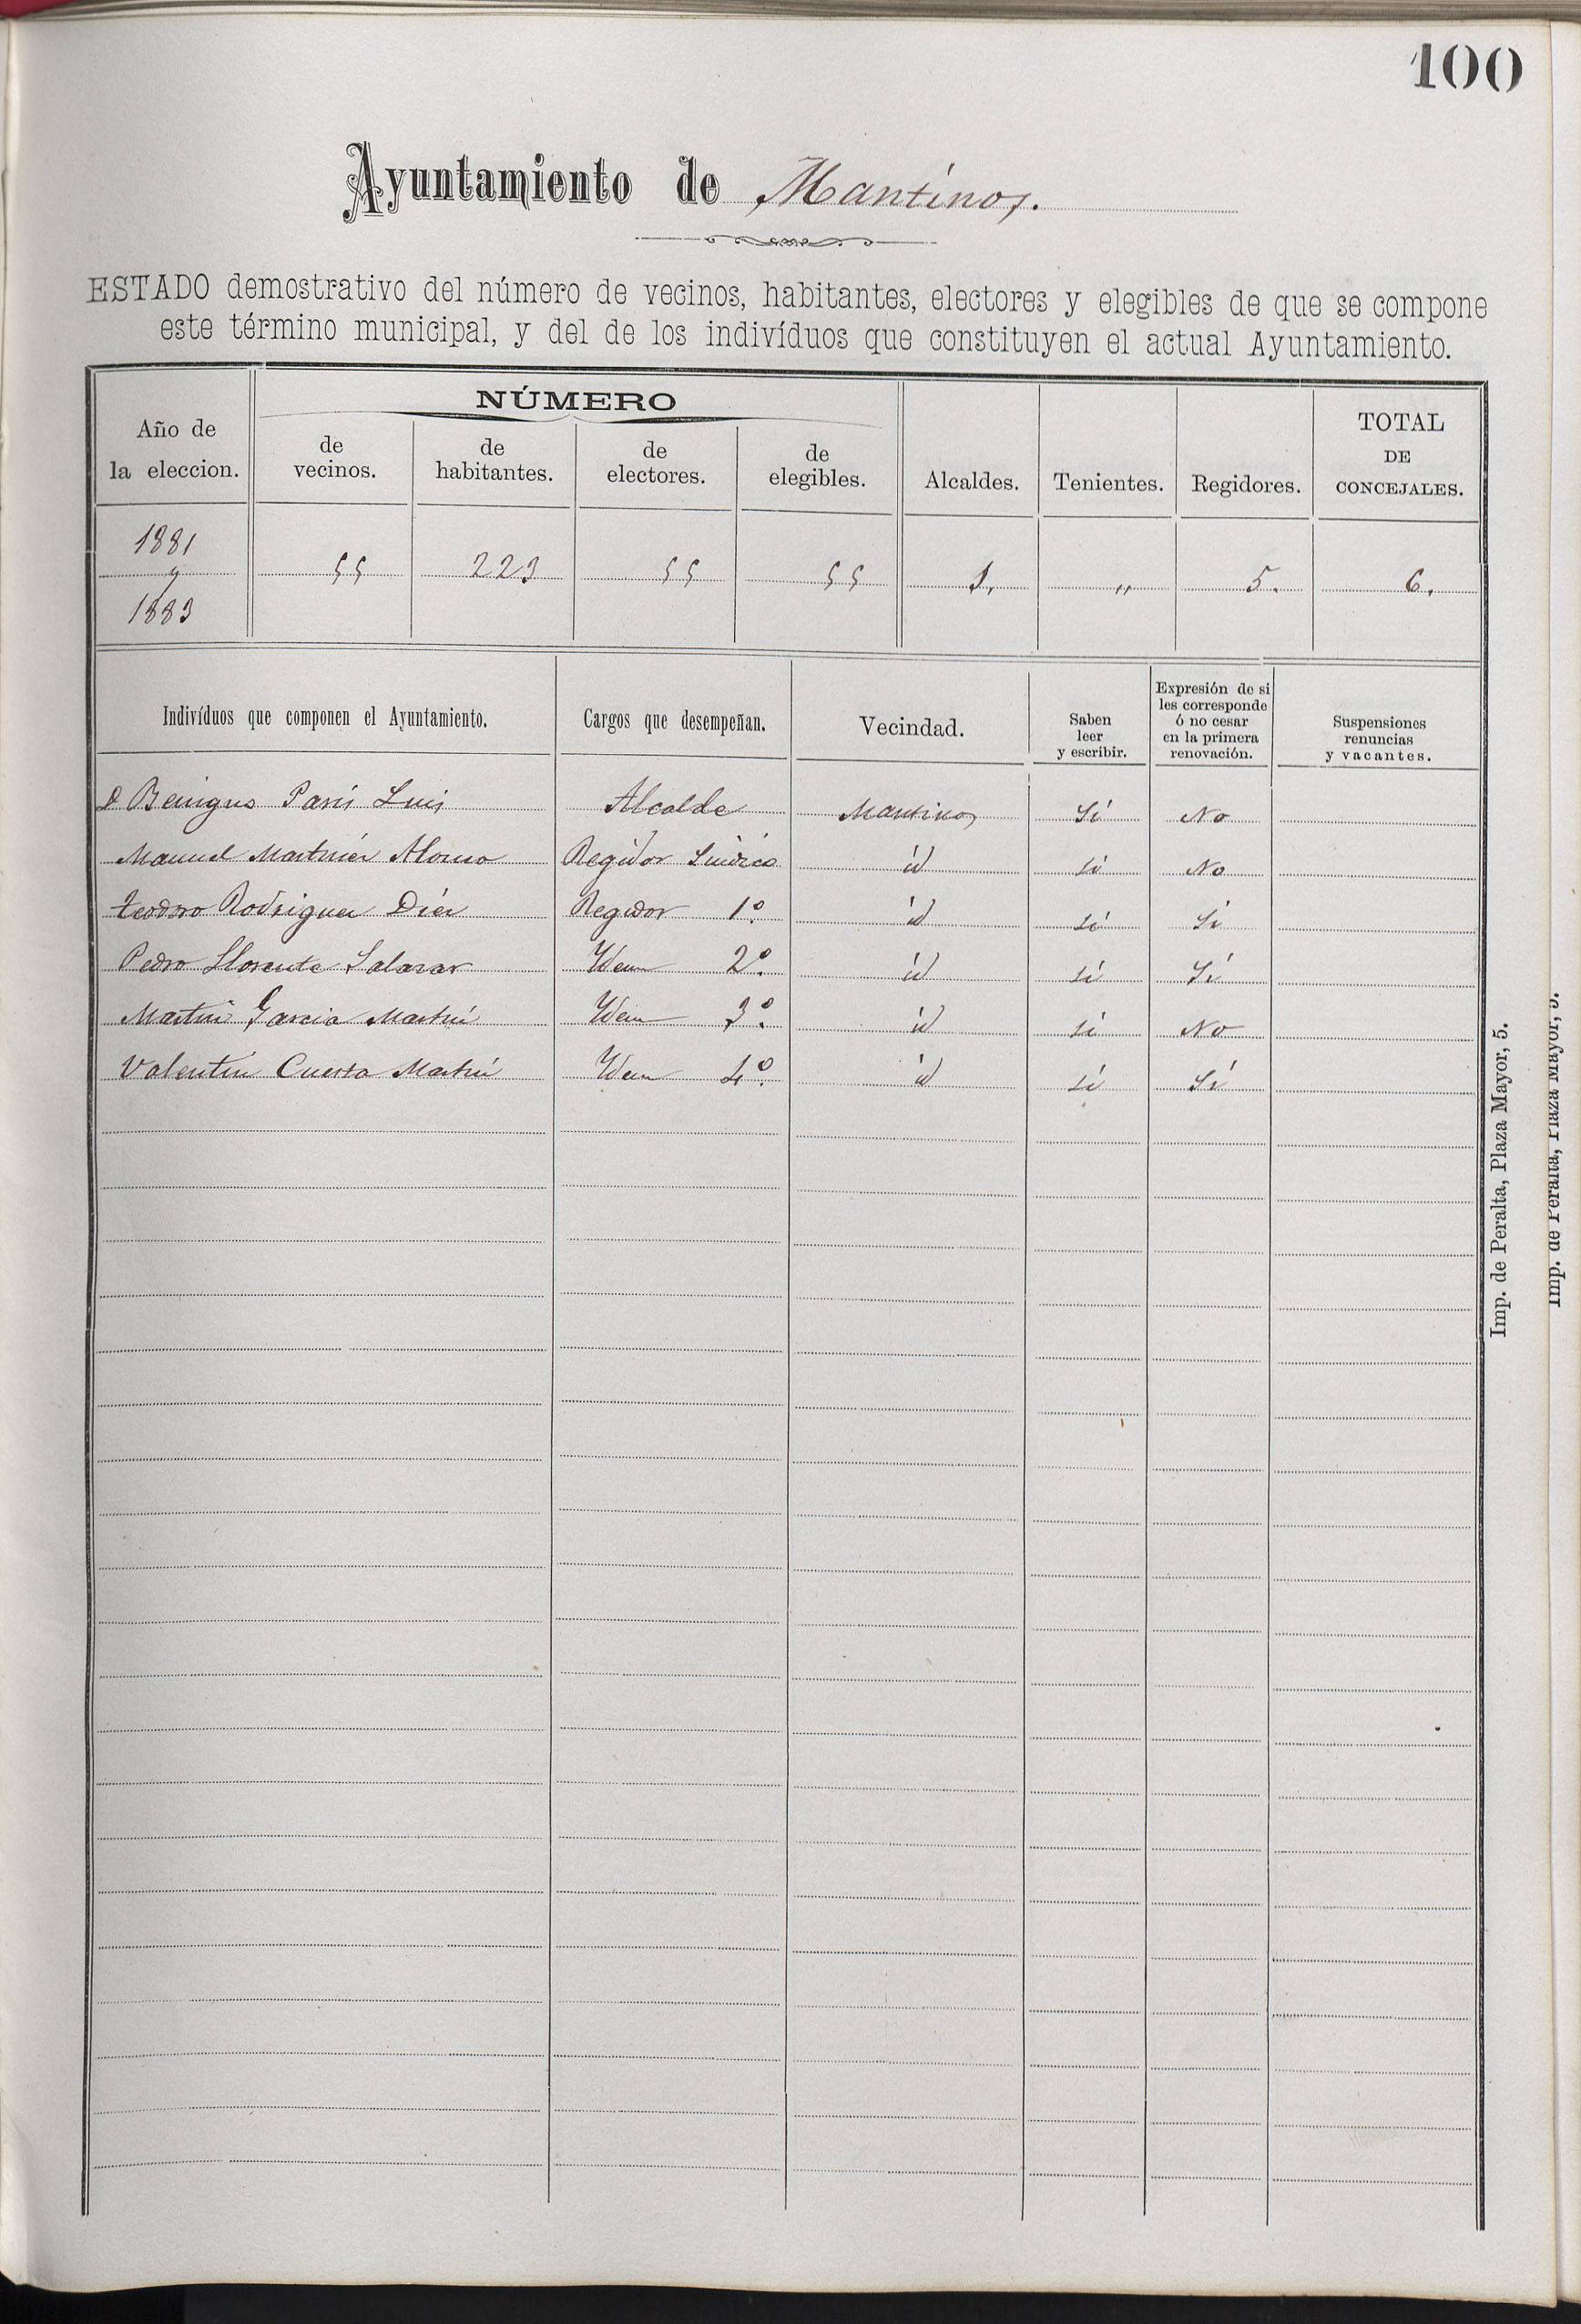 100
Ayuntamiento de Mantinos.
ESTADO demostrativo del número de vecinos, habitantes, electores y elegibles de que se compone
este término municipal, y del de los indivíduos que constituyen el actual Ayuntamiento.
Año de la eleccion. NÚMERO de vecinos. de habitantes. de electores. de elegibles. Alcaldes. Tenientes. Regidores. TOTAL DE CONCEJALES.
1881
y 55 223 55 55 1. " 5. 6.
1883
Indivíduos que componen el Ayuntamiento. Cargos que desempeñan. Vecindad. Saben leer y escribir. Expresión de si les corresponde ó no cesar en la primera renovación. Suspensiones renuncias y vacantes.
D Benigno Luis Alcalde Mantinos Sí No
Manuel Martinez Alonso Regidor Sindico id sí No
Teodoro Rodriguez Diez Regidor 1º. id sí Sí
Pedro Llorente Salazar Idem 2º. id sí Sí
Martin Garcia Martin Idem 3º. id sí No
Valentin Cuesta Martin Idem 4º. id sí Sí
Imp. de Peralta, Plaza Mayor, 5.
Imp. de Peralta, Plaza Mayor, 5.